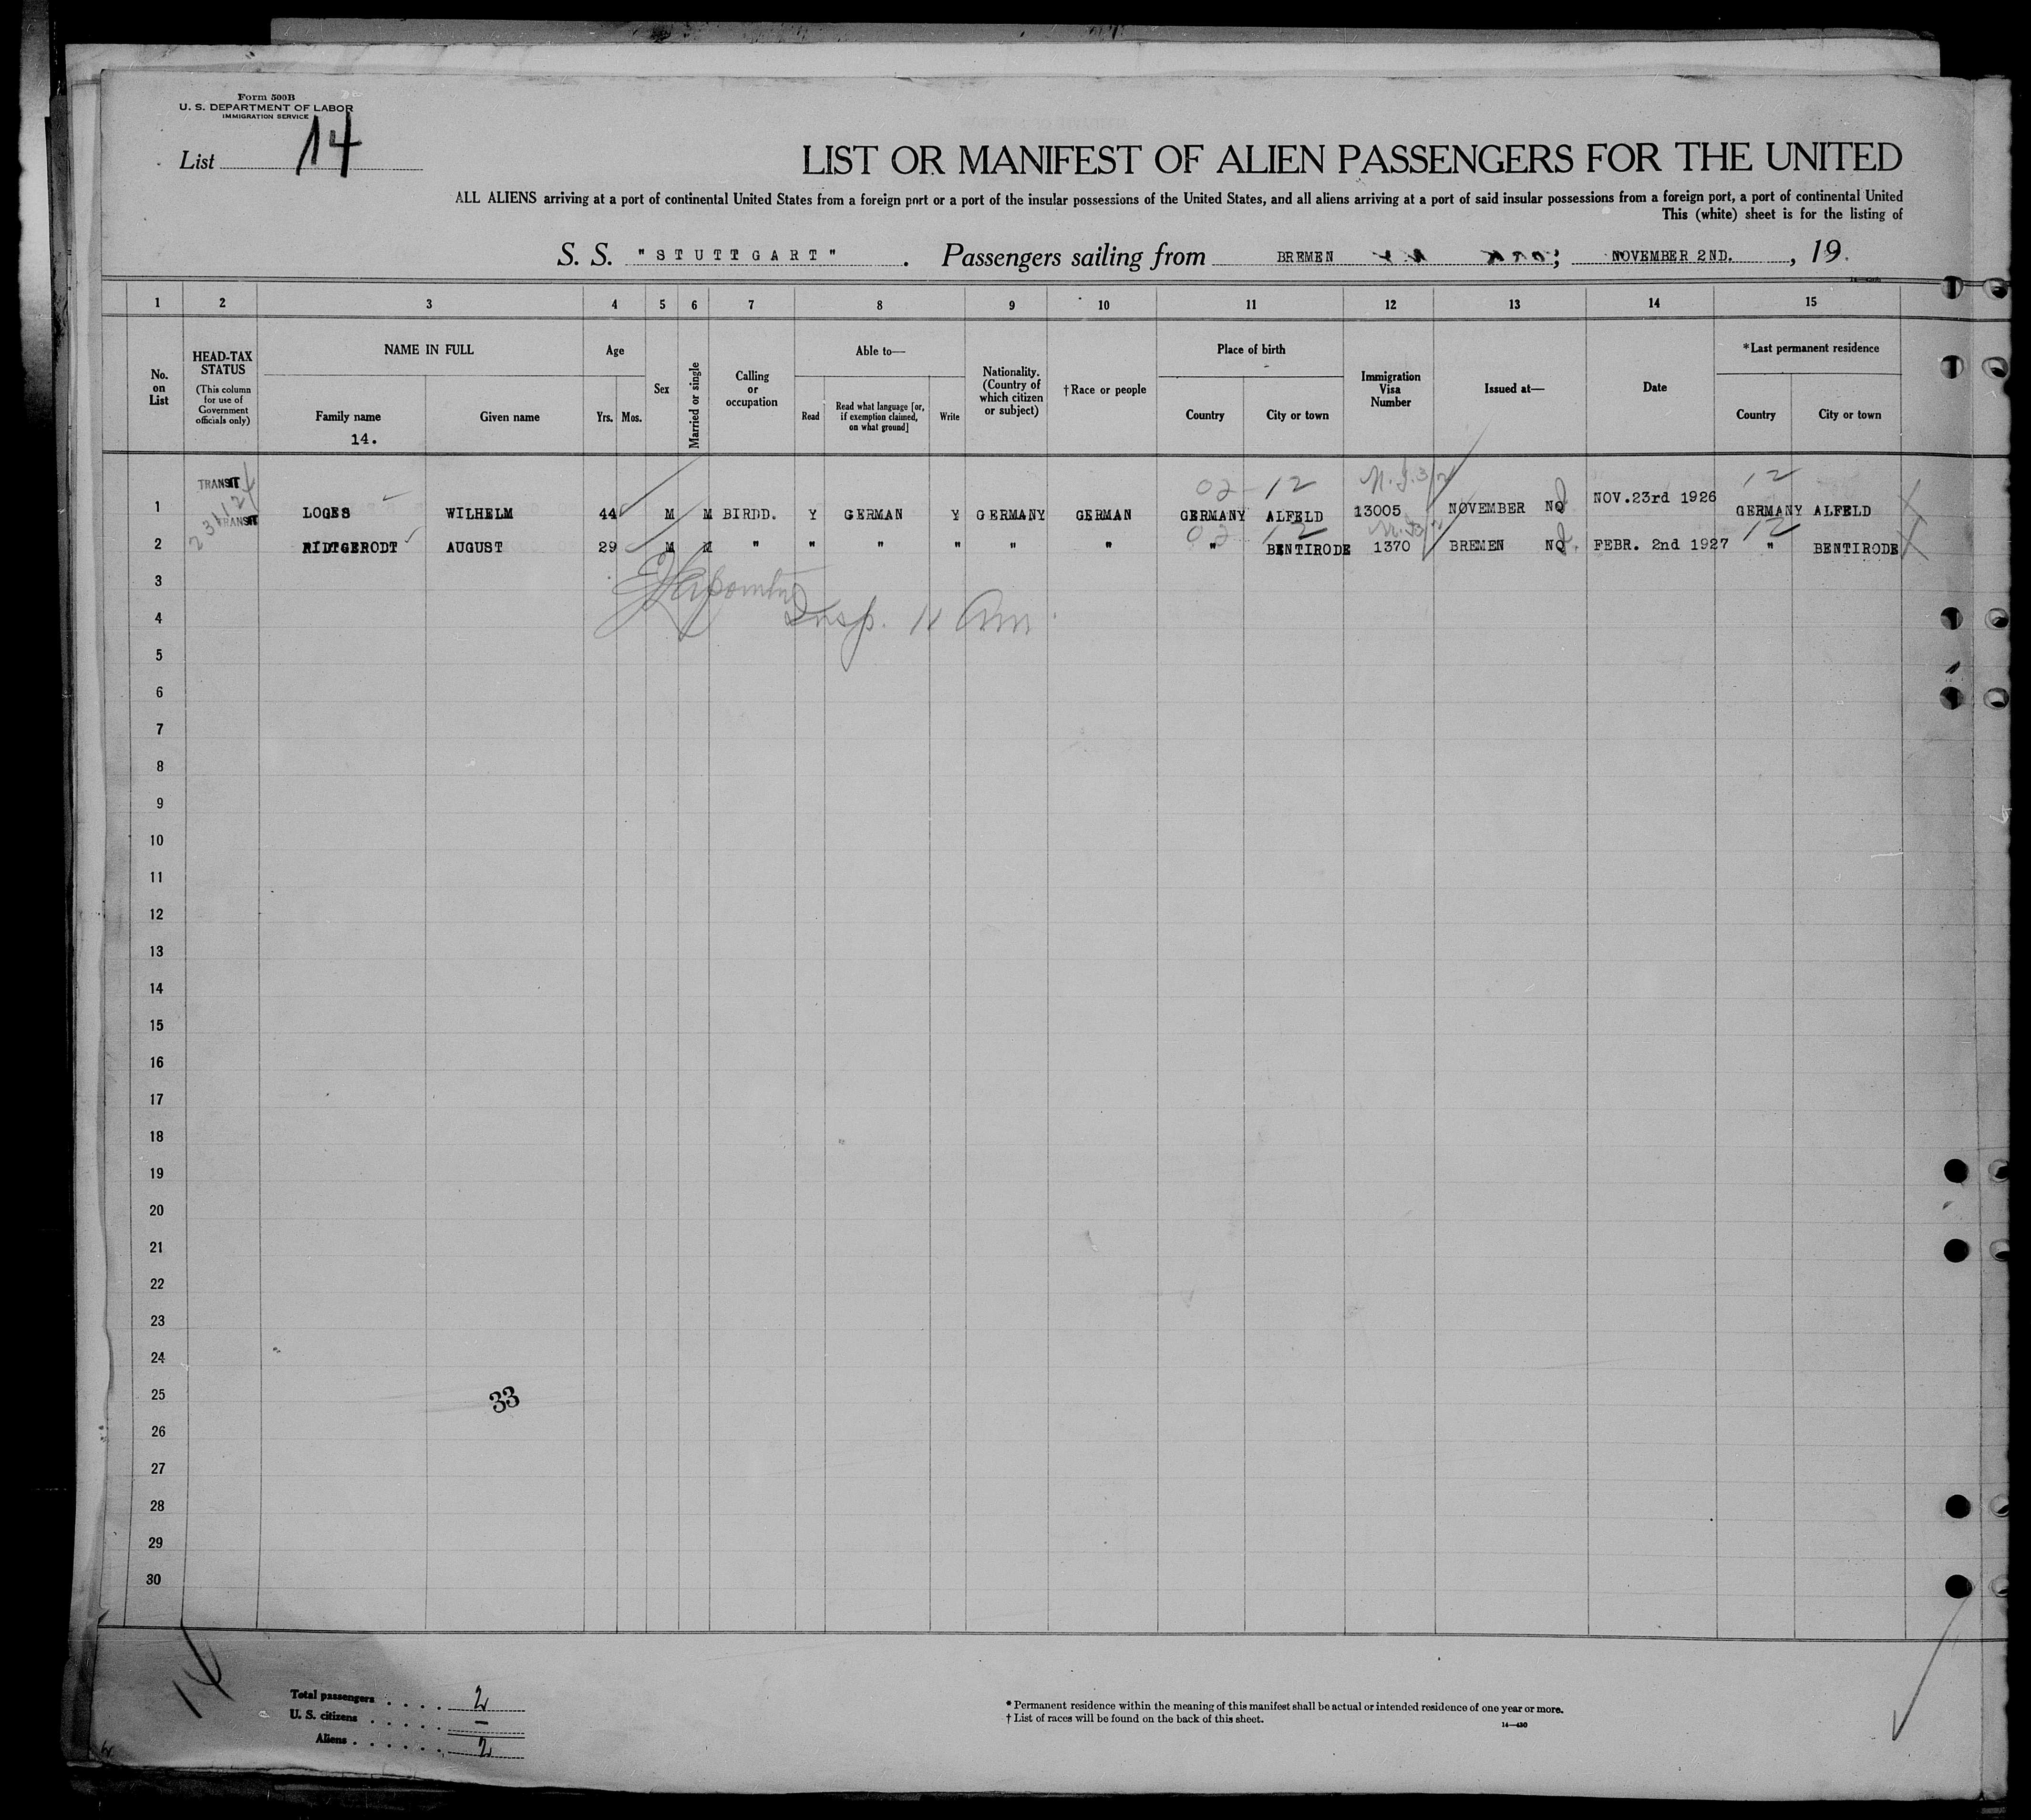 Form 500B
U. S. DEPARTMENT OF LABOR
IMMIGRATION SERVICE
List 14
LIST OR MANIFEST OF ALIEN PASSENGERS FOR THE UNITED
ALL ALIENS arriving at a port of continental United States from a foreign port or a port of the insular possessions of the United States, and all aliens arriving at a port of said insular possessions from a foreign port, a port of continental United
This (white) sheet is for the listing of
S. S. "STUTTGART" . Passengers sailing from BREMEN ; NOVEMBER 2ND. , 19
1 2 3 4 5 6 7 8 9 10 11 12 13 14 15
No. on List
HEAD-TAX STATUS
(This column for use of Government officials only)
NAME IN FULL
Family name
14.
Given name
Age
Yrs. Mos.
Sex
Married or single
Calling or occupation
Able to—
Read
Read what language [or, if exemption claimed, on what ground]
Write
Nationality. (Country of which citizen or subject)
†Race or people
Place of birth
Country
City or town
Immigration Visa Number
Issued at—
Date
*Last permanent residence
Country
City or town
TRANSIT 02 12 12
1 LOGES WILHELM 44 M M BIRDD. Y GERMAN Y GERMANY GERMAN GERMANY ALFELD 13005 NOVEMBER NQ NOV.23rd 1926 GERMANY ALFELD
TRANSIT 02 12 12
2 AUGUST 29 M M " " " " " " " BENTIRODE 1370 BREMEN NQ. FEBR. 2nd 1927 " BENTIRODE
3
4 Insp. 11 Am
5
6
7
8
9
10
11
12
13
14
15
16
17
18
19
20
21
22
23
24
25 33
26
27
28
29
30
14
Total passengers . . . . 2
U. S. citizens . . . . . —
Aliens . . . . . . 2
* Permanent residence within the meaning of this manifest shall be actual or intended residence of one year or more.
† List of races will be found on the back of this sheet.
14—430